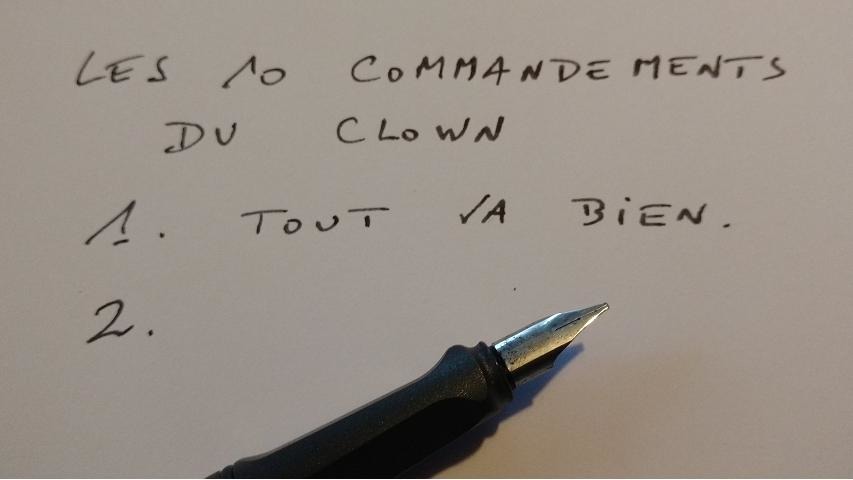 LES 10 COMMANDEMENTS
DU CLOWN
1. TOUT VA BIEN.
2.